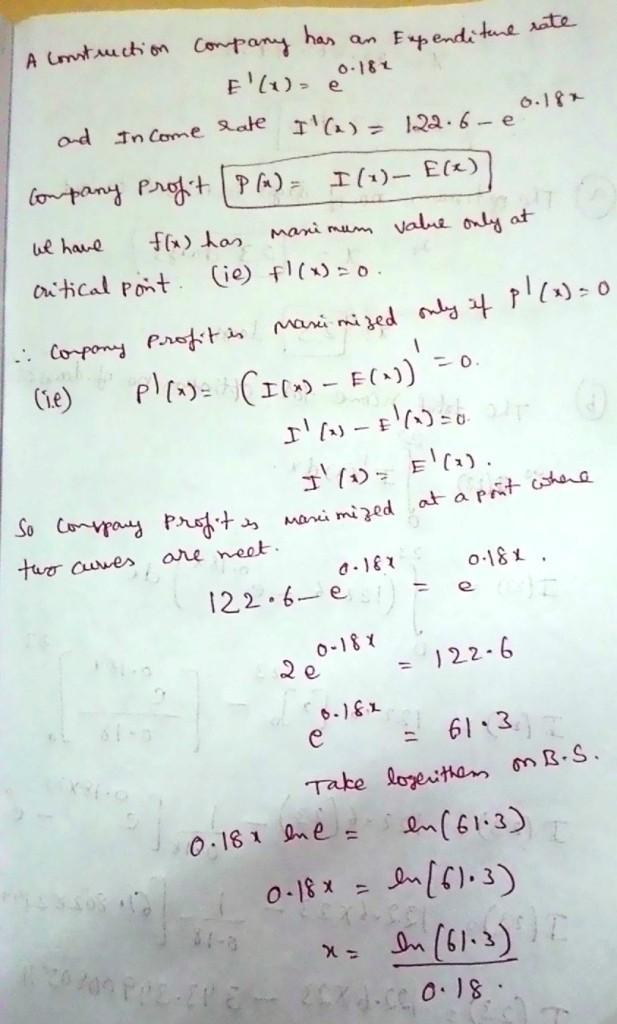 A Construction Company has an Expenditure rate
E'(x) = e^0.18x
and Income Rate I'(x) = 122.6 - e^0.18x
Company Profit P(x) = I(x) - E(x)
we have f(x) has maximum value only at
critical point. (ie) f'(x) = 0.
∴ Company Profit is maximized only if P'(x) = 0
(i.e) P'(x) = (I(x) - E(x))' = 0.
I'(x) - E'(x) = 0.
I'(x) = E'(x).
So Company Profit is maximized at a point where
two curves are meet.
122.6 - e^0.18x = e^0.18x.
2e^0.18x = 122.6
e^0.18x = 61.3
Take logerithem on B.S.
0.18x ln e = ln(61.3)
0.18x = ln(61.3)
x = ln(61.3)
0.18.